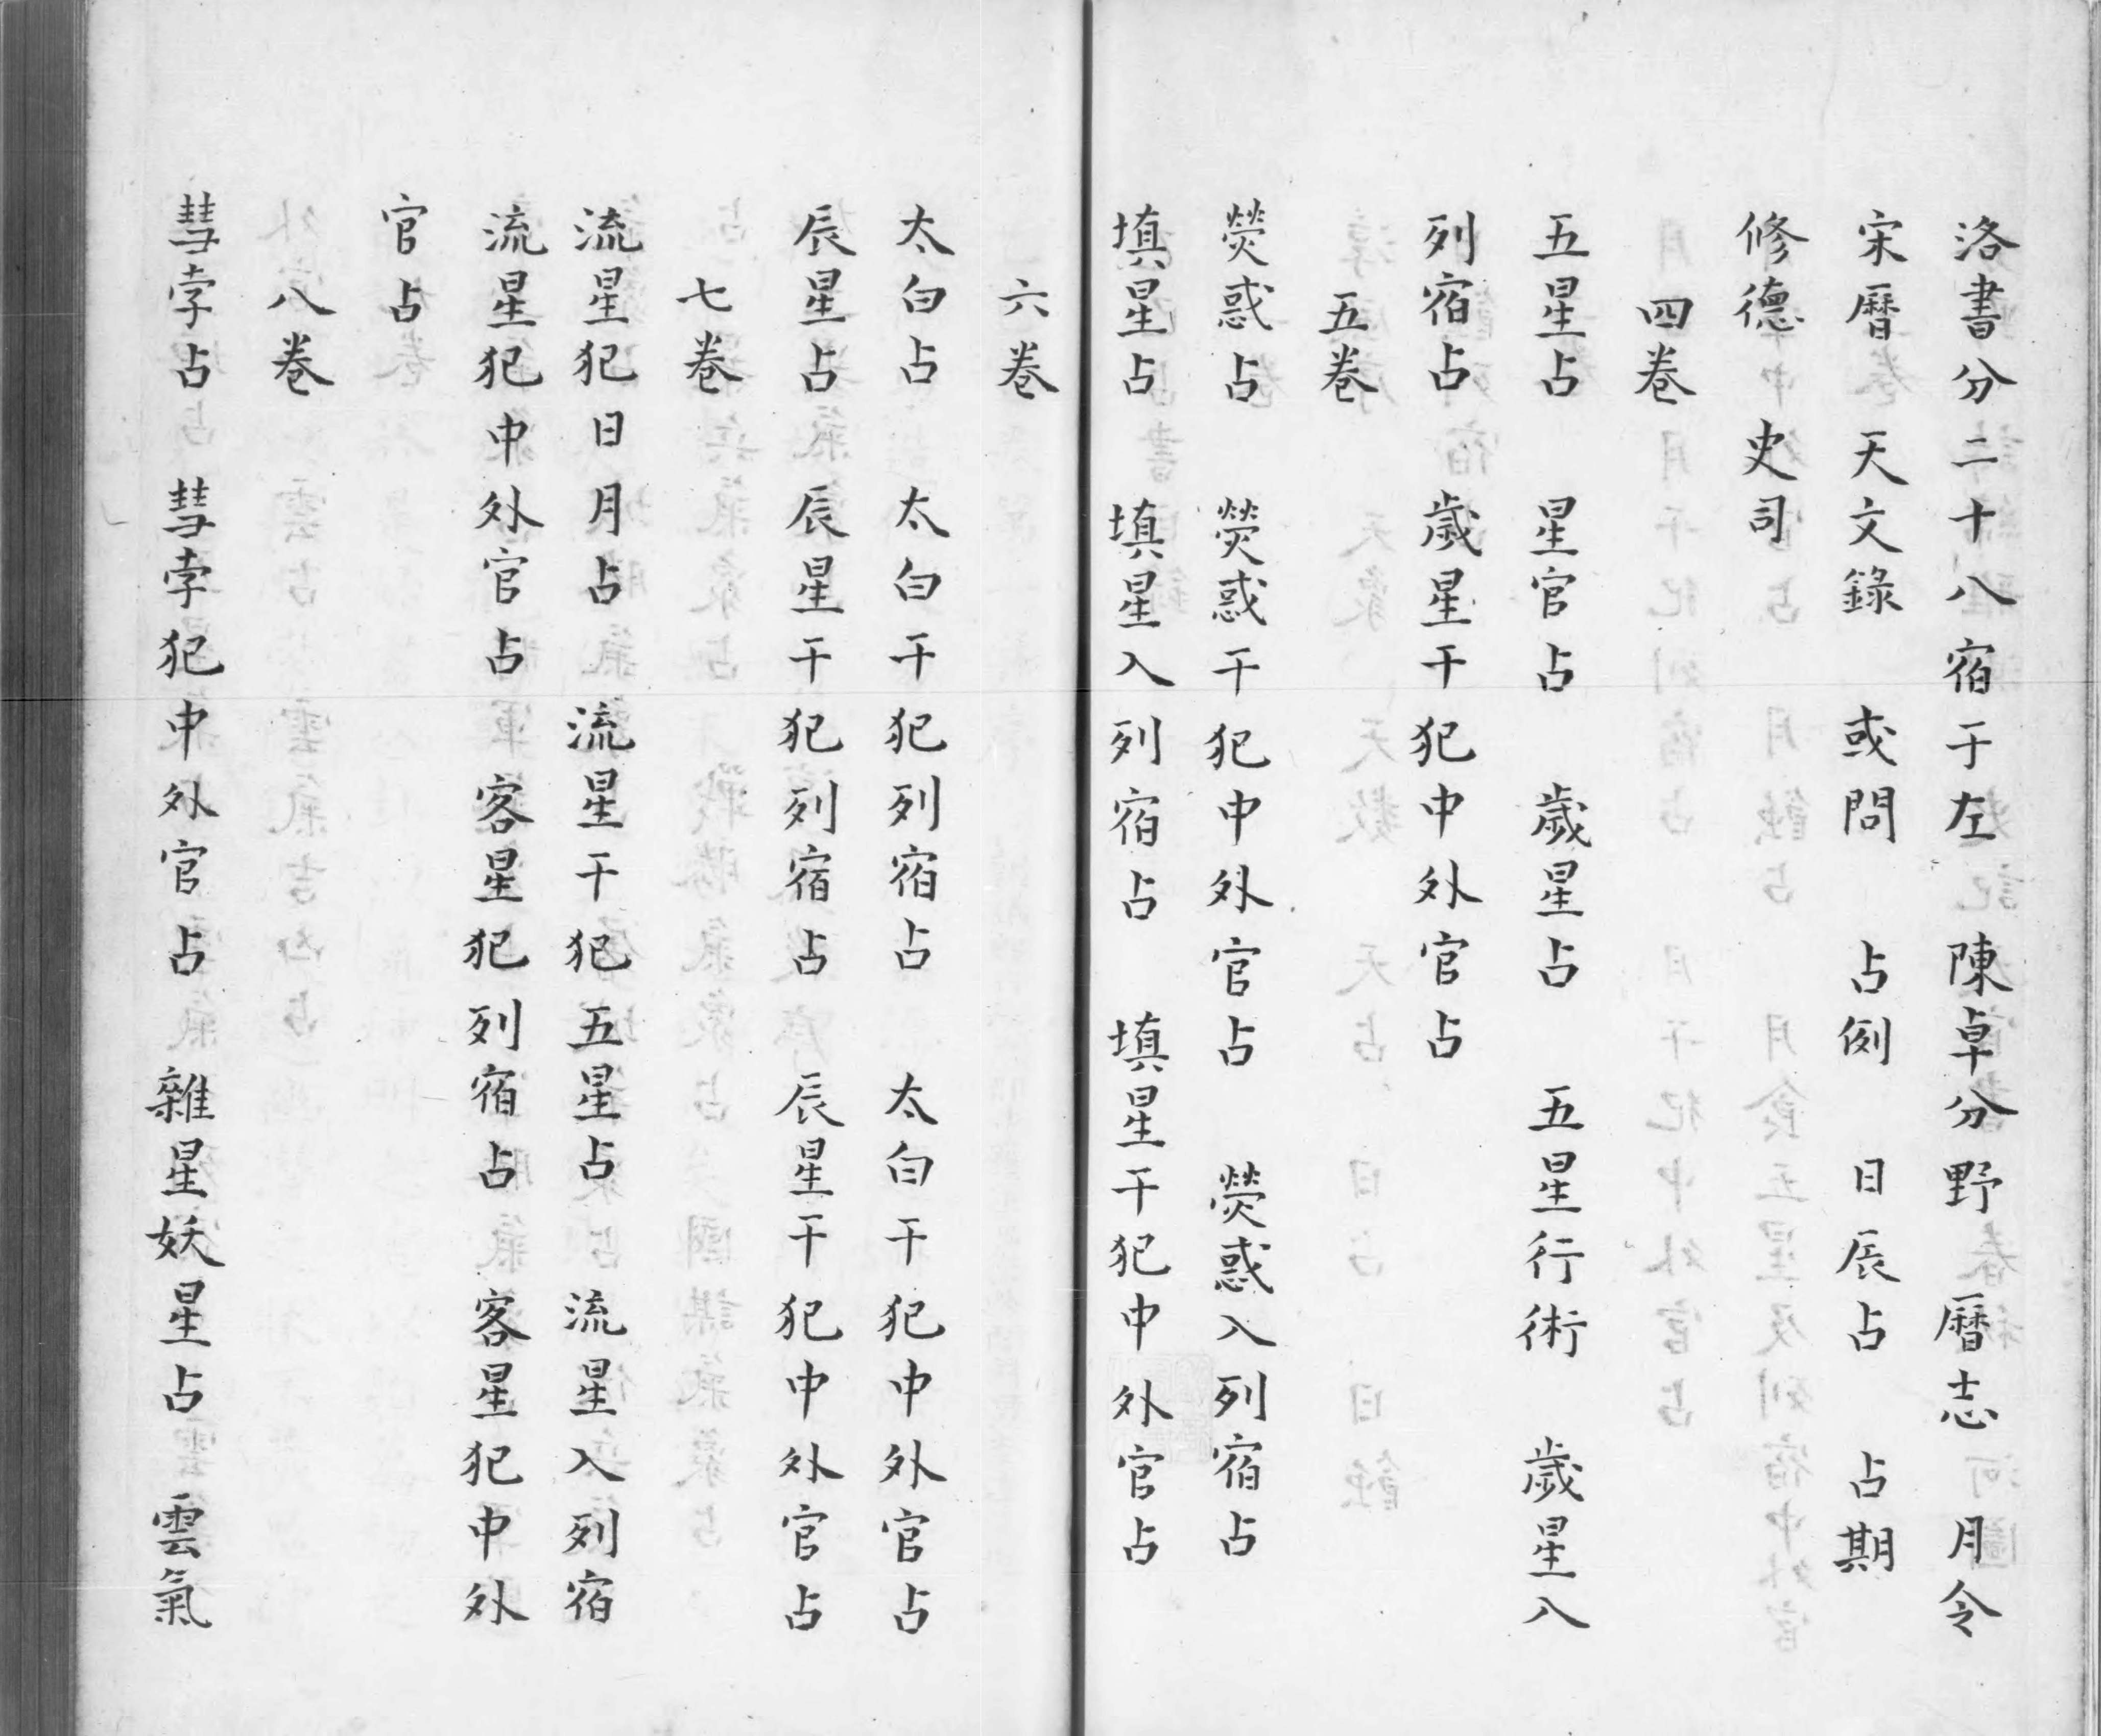 洛書分二十八宿于左　陳卓分野　曆志　月令
宋曆　天文錄　或問　占例　日辰占　占期
修德　史司
四卷
五星占　星官占　歲星占　五星行術　歲星入
列宿占　歲星干犯中外官占
五卷
熒惑占　熒惑干犯中外官占　熒惑入列宿占
填星占　填星入列宿占　填星干犯中外官占
六卷
太白占　太白干犯列宿占　太白干犯中外官占
辰星占　辰星干犯列宿占　辰星干犯中外官占
七卷
流星犯日月占　流星干犯五星占　流星入列宿
流星犯中外官占　客星犯列宿占　客星犯中外
官占
八卷
彗孛占　彗孛犯中外官占　雜星妖星占　雲氣